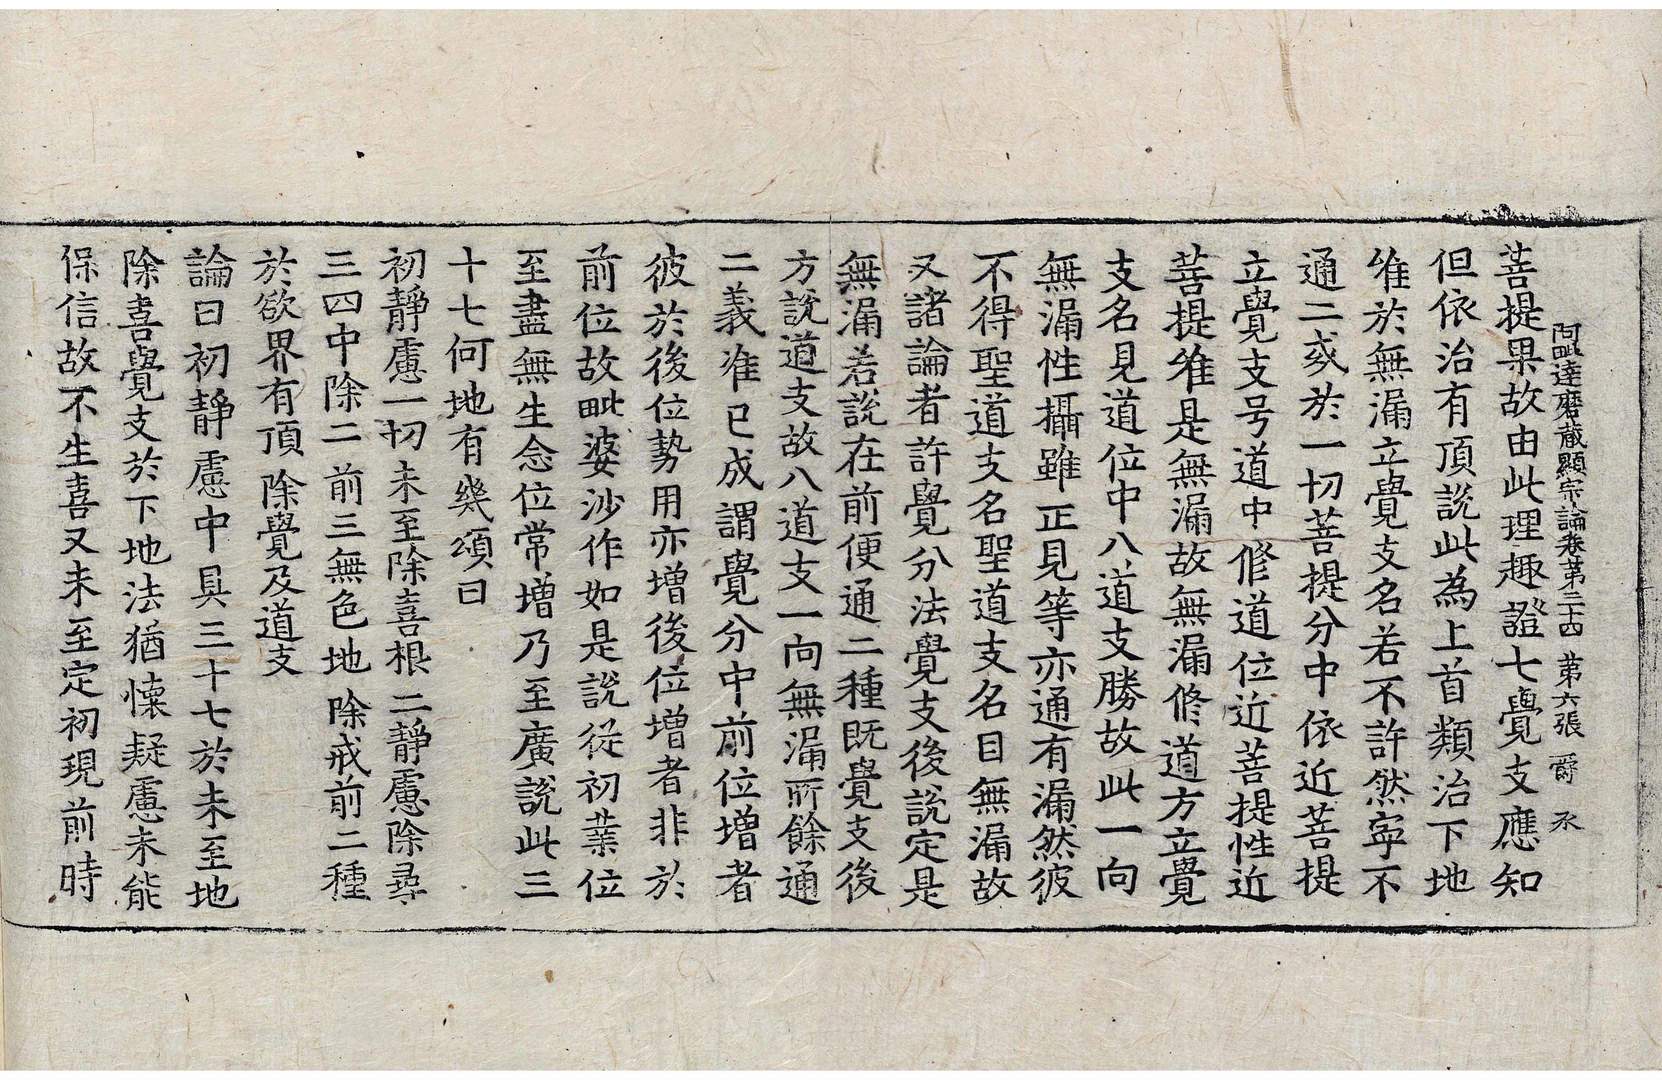 阿毗達磨藏顯宗論卷第三十四 第六張 爵 水
菩提果故由此理趣證七覺支應知
但依治有頂說此為上首類治下地
唯於無漏立覺支名若不許然寧不
通二或於一切菩提分中依近菩提
立覺支号道中修道位近菩提性近
菩提唯是無漏故無漏修道方立覺
支名見道位中八道支勝故此一向
無漏性攝雖正見等亦通有漏然彼
不得聖道支名聖道支名目無漏故
又諸論者許覺分法覺支後說定是
無漏若說在前便通二種既覺支後
方說道支故八道支一向無漏所餘通
二義准已成謂覺分中前位增者
彼於後位勢用亦增後位增者非於
前位故毗婆沙作如是說從初業位
至盡無生念位常增乃至廣說此三
十七何地有幾頌曰
初靜慮一切 未至除喜根 二靜慮除尋
三四中除二 前三無色地 除戒前二種
於欲界有頂 除覺及道支
論曰初靜慮中具三十七於未至地
除喜覺支於下地法猶懷疑慮未能
保信故不生喜又未至定初現前時